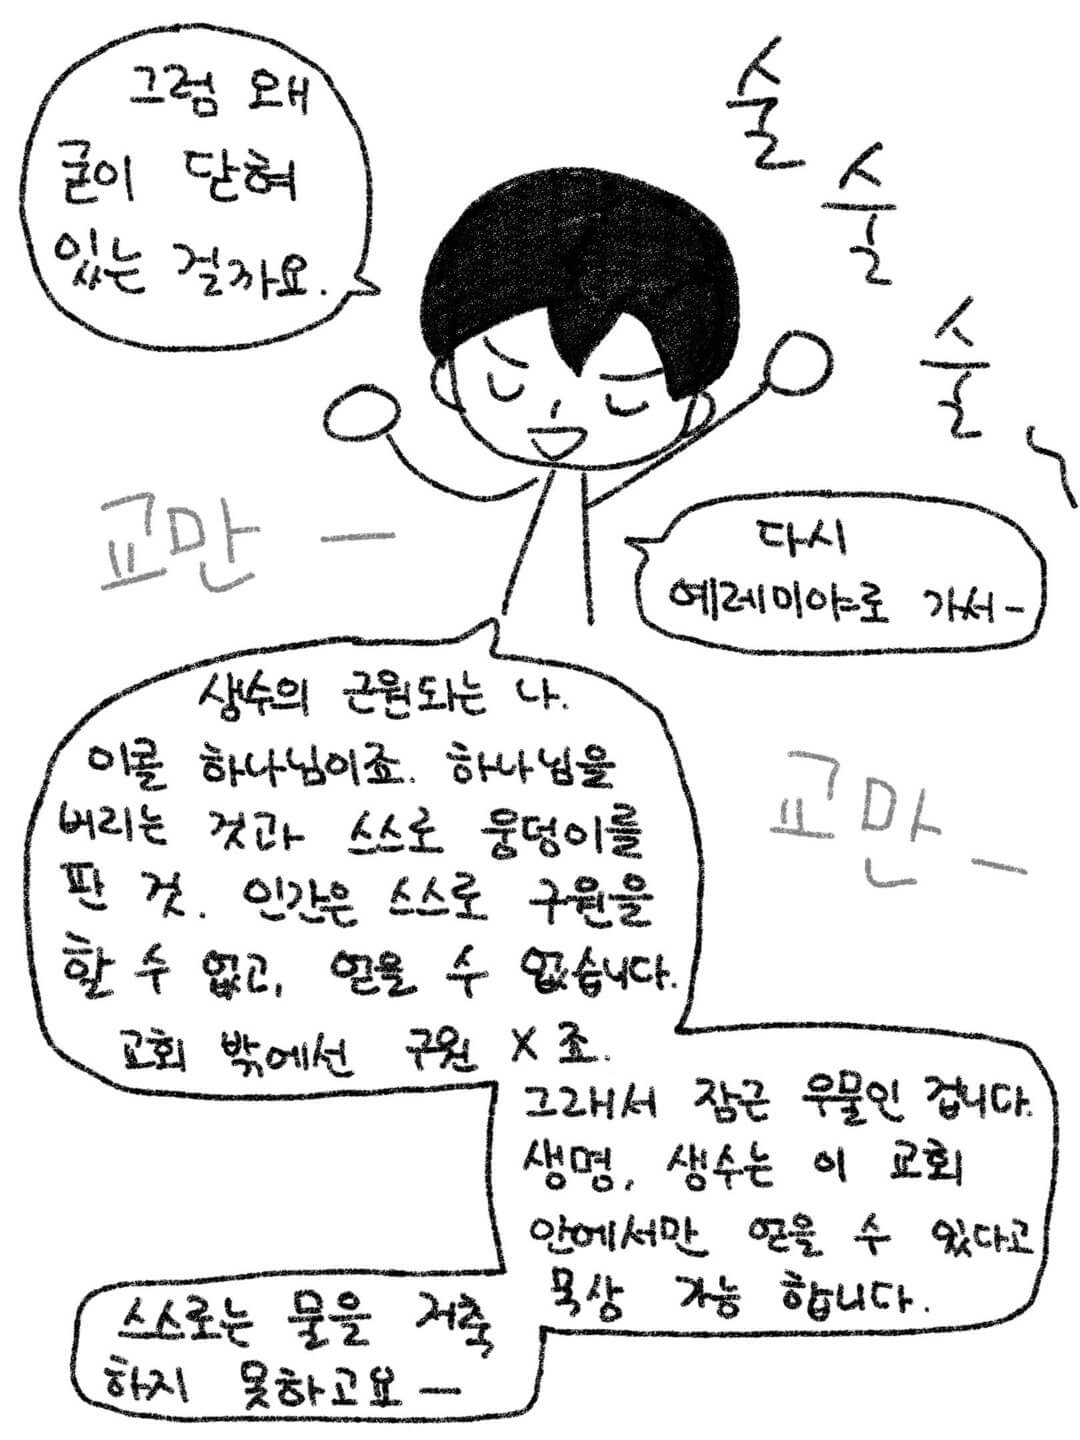 그럼 왜
굳이 닫혀
있는 걸까요.
술
술
술
교만 —
다시
예레미야로 가서-
생수의 근원되는 나.
이콜 하나님이죠. 하나님을
버리는 것과 스스로 웅덩이를
판 것. 인간은 스스로 구원을
할 수 없고, 얻을 수 없습니다.
교회 밖에선 구원 X 죠.
교만 —
그래서 잠근 우물인 겁니다.
생명, 생수는 이 교회
안에서만 얻을 수 있다고
묵상 가능 합니다.
스스로는 물을 저축
하지 못하고요 —